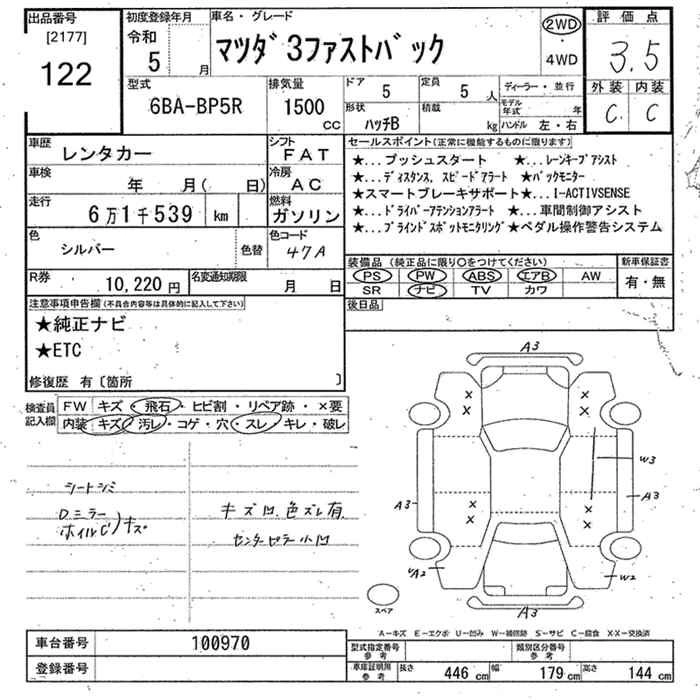 出品番号
[2177]
122
初度登録年月
令和
5 月
車名・グレード
マツダ 3ファストバック
2WD
・
4WD
評価点
3.5
外装 内装
C C
型式
6BA-BP5R
排気量
1500
CC
ドア
5
定員
5 人
形状
ハッチB
積載
kg
ディーラー・並行
モデル年式 年
ハンドル 左・右
車歴
レンタカー
シフト
FAT
車検
年 月( 日)
冷房
AC
走行
6万1千539 km
燃料
ガソリン
色
シルバー
色替
色コード
47A
R券
10,220 円
名変通知期限
月 日
セールスポイント(正常に機能するものに限ります)
★...プッシュスタート ★...レーンキープアシスト
★...ディスタンス、スピードアラート ★バックモニター
★スマートブレーキサポート★...I-ACTIVSENSE
★...ドライバーアテンションアラート ★...車間制御アシスト
★...ブラインドスポットモニタリング★ペダル操作警告システム
装備品(純正品に限り〇をつけてください)
PS PW ABS エアB AW
SR ナビ TV カワ
新車保証書
有・無
後日品
注意事項申告欄(不具合内容等は具体的に記入して下さい)
★純正ナビ
★ETC
修復歴 有〔箇所 〕
検査員記入欄
FW キズ・飛石・ヒビ割・リペア跡・×要
内装・キズ・汚レ・コゲ・穴・スレ・キレ・破レ
シートシミ
Dミラー
ホイルC)キズ
キズ凹、色ズレ有
センターピラー小凹
A3
W3
A3
A3
A2
W2
A3
スペア
A-キズ E-エクボ U-凹み W-補修跡 S-サビ C-腐食 X・XX-交換済
車台番号
100970
登録番号
型式指定番号
参考
類別区分番号
参考
車庫証明用
参考
長さ 446 cm 幅 179 cm 高さ 144 cm